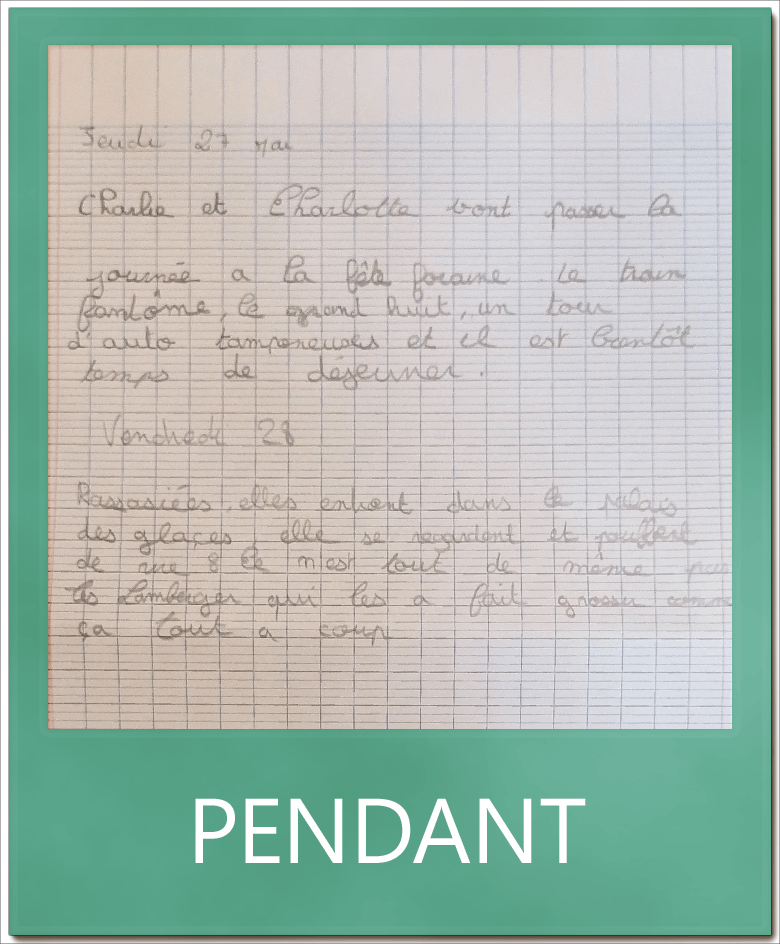 Jeudi 27 mai
Charlie et Charlotte vont passer la
journée a la fête foraine le train
fantôme, le grand huit, un tour
d'auto tamponeuses et il est bientôt
temps de déjeuner.
Vendredi 28
Rassasiées, elles entrent dans le palais
des glaçes, elle se regardent et pouffent
de rire : Ce n'est tout de même pas
qui les a fait grossir comme
ça tout a coup
PENDANT